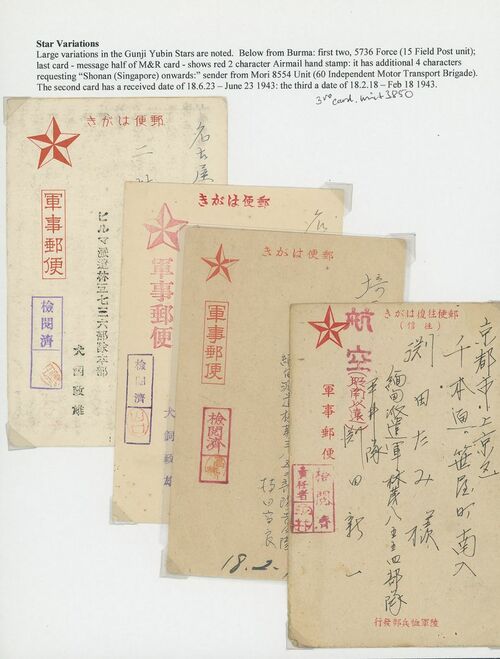 Star Variations
Large variations in the Gunji Yubin Stars are noted.  Below from Burma: first two, 5736 Force (15 Field Post unit);
last card - message half of M&R card - shows red 2 character Airmail hand stamp: it has additional 4 characters
requesting “Shonan (Singapore) onwards:” sender from Mori 8554 Unit (60 Independent Motor Transport Brigade).
The second card has a received date of 18.6.23 – June 23 1943: the third a date of 18.2.18 – Feb 18 1943.
3rd card, unit 3850
きがは便郵
名古屋
軍事郵便
ビルマ派遣林五七三六部隊本部
犬飼政雄
検閲濟
きがは便郵
軍事郵便
検閲濟
犬飼政雄
きがは便郵
軍事郵便
検閲濟
18.2.
きがは復往便郵
(信往)
京都市上京区
千本通笹屋町南入
渕田たみ様
航空
(昭南以遠)
緬甸派遣軍林第八五五四部隊
渕田新一
軍事郵便
検閲濟
責任者
行發部兵恤軍陸